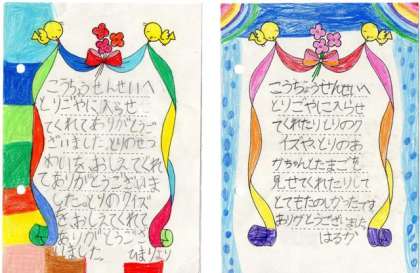 こうちょうせんせいへ
とりごやに入らせ
てくれてありがとうご
ざいました。とりのせつ
めいを、おしえてくれ
てありがとうございま
した。とりのクイズ
をおしえてくれて
ありがとうござ
いました。
ひまりより
こうちょうせんせいへ
とりごやに入らせ
てくれたりとりのク
イズやとりのあ
かちゃんとたまごを
見せてくれたりして
とてもたのしかったです
ありがとうございました
はるか